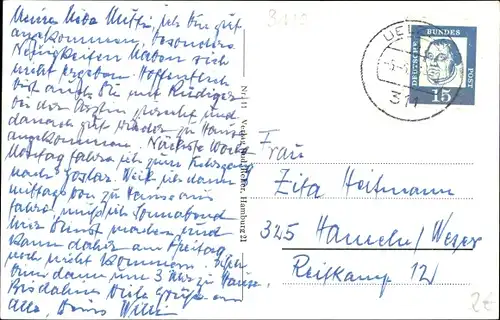 Meine liebe Mutti, ich bin gut
angekommen, besondere
Neuigkeiten haben sich
nicht ergeben. Hoffentlich
bist auch Du mit Rüdiger
bei der Ärztin gewesen und
danach gut wieder zu Hause
angekommen. Nächste Woche
Montag fahre ich zum Lehrgang
nach Goslar. Weil ich dann
mittags von zu Hause aus
fahre, muß ich Sonnabend
hier Dienst machen und
kann daher am Freitag
noch nicht kommen. Ich
bin dann um 3 Uhr zu Hause.
Bis dahin viele Grüße an
alle, Dein Willi
Nr. 11 Verlag Hamburg 21
UEL
311
DEUTSCHE BUNDESPOST
15
Frau
Zita Heitmann
325 Hameln/Weser
Reitkamp 12
2€